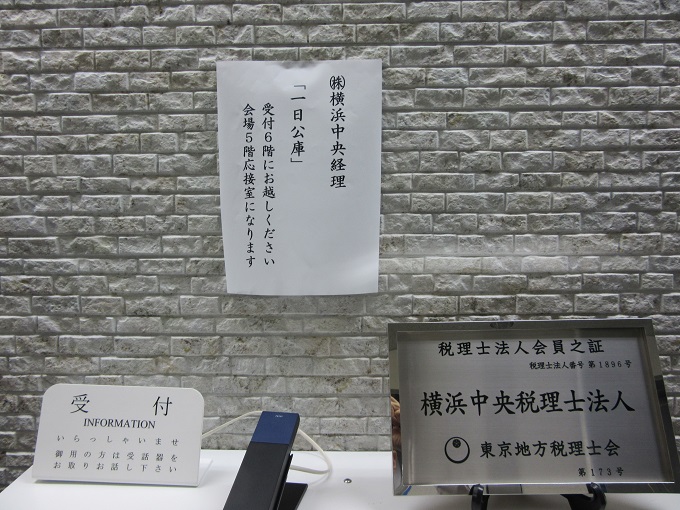 ㈱横浜中央経理
「一日公庫」
受付６階にお越しください
会場５階応接室になります
受　付
INFORMATION
いらっしゃいませ
御用の方は受話器を
お取りお話し下さい
税理士法人会員之証
税理士法人番号 第1896号
横浜中央税理士法人
東京地方税理士会
第173号